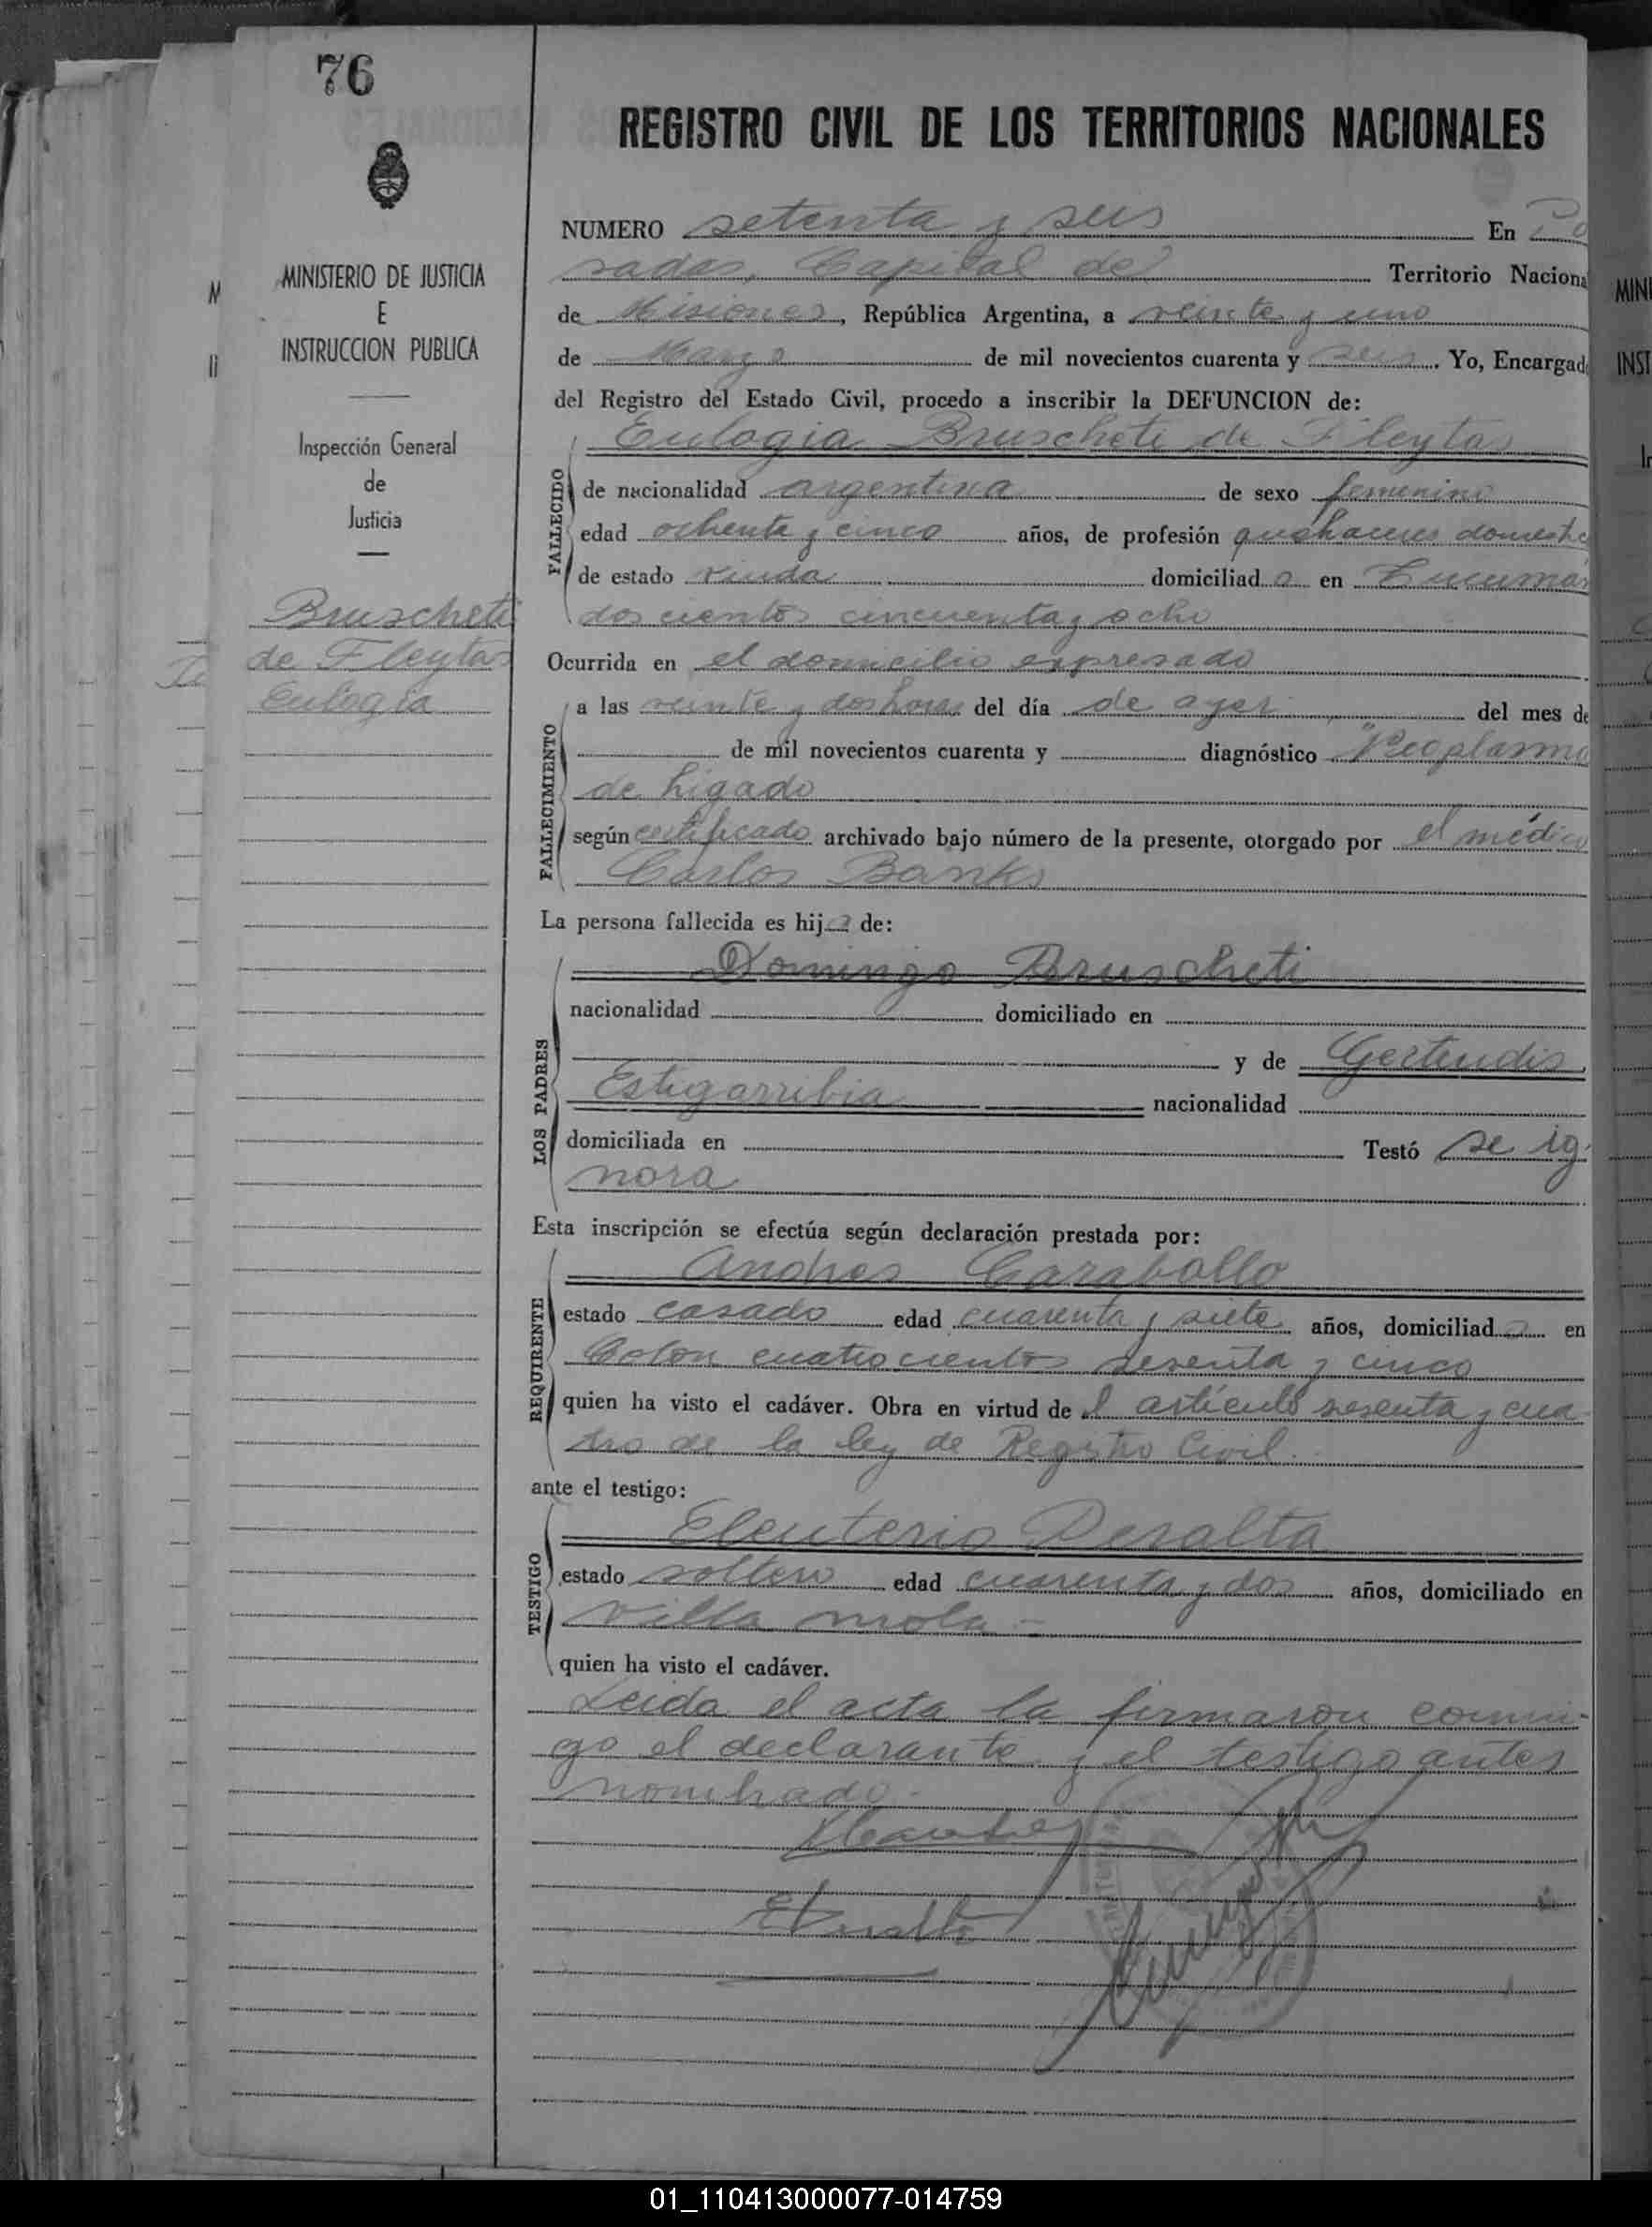 76
MINISTERIO DE JUSTICIA
E
INSTRUCCION PUBLICA
Inspección General
de
Justicia
Bruscheti
de Fleytas
Eulogia
REGISTRO CIVIL DE LOS TERRITORIOS NACIONALES
NUMERO setenta y seis En Po
sadas, Capital del Territorio Naciona
de Misiones, República Argentina, a veinte y uno
de Marzo de mil novecientos cuarenta y seis. Yo, Encargad
del Registro del Estado Civil, procedo a inscribir la DEFUNCION de:
Eulogia Bruscheti de Fleytas
FALLECIDO
de nacionalidad argentina de sexo femenino
edad ochenta y cinco años, de profesión quehaceres domestic
de estado viuda domiciliad a en Tucuman
doscientos cincuenta y ocho
Ocurrida en el domicilio expresado
FALLECIMIENTO
a las veinte y dos horas del día de ayer del mes de
de mil novecientos cuarenta y diagnóstico "Neoplasma
de higado
según certificado archivado bajo número de la presente, otorgado por el médico
Carlos Banks
La persona fallecida es hija de:
LOS PADRES
Domingo Bruscheti
nacionalidad domiciliado en
y de Gertrudis
Estigarribia nacionalidad
domiciliada en Testó se ig
nora
Esta inscripción se efectúa según declaración prestada por:
REQUIRENTE
Andres Caraballo
estado casado edad cuarenta y siete años, domiciliado en
Colon cuatrocientos sesenta y cinco
quien ha visto el cadáver. Obra en virtud del artículo sesenta y cua
tro de la ley de Registro Civil.
ante el testigo:
TESTIGO
Eleuterio Peralta
estado soltero edad cuarenta y dos años, domiciliado en
Villa mola -
quien ha visto el cadáver.
Leida el acta la firmaron conmi-
go el declarante y el testigo antes
nombrado.
EPeralta
01_110413000077-014759